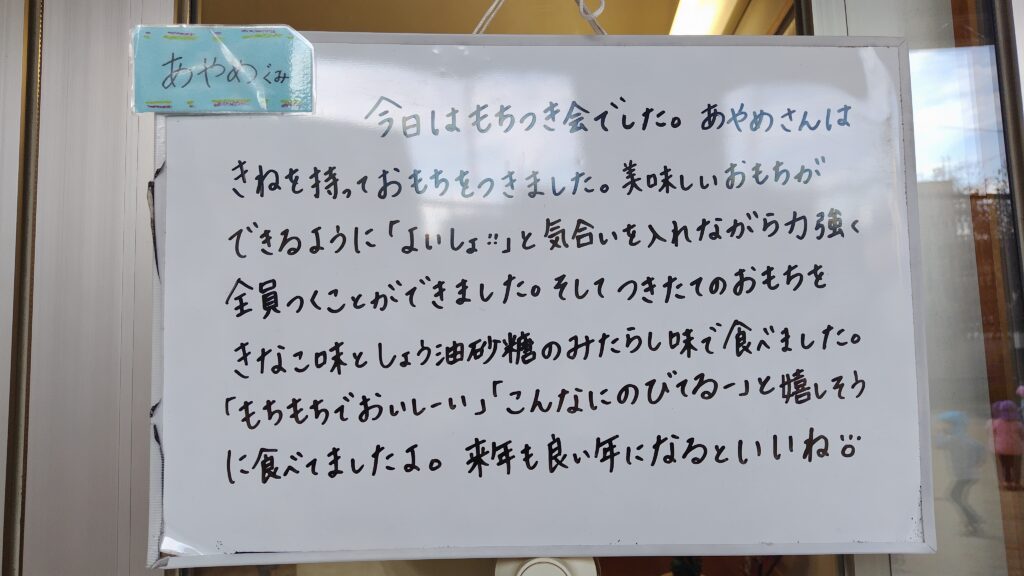 あやめぐみ
今日はもちつき会でした。あやめさんは
きねを持っておもちをつきました。美味しいおもちが
できるように「よいしょ!!」と気合いを入れながら力強く
全員つくことができました。そしてつきたてのおもちを
きなこ味としょう油砂糖のみたらし味で食べました。
「もちもちでおいしーい」「こんなにのびてるー」と嬉しそう
に食べてましたよ。来年も良い年になるといいね